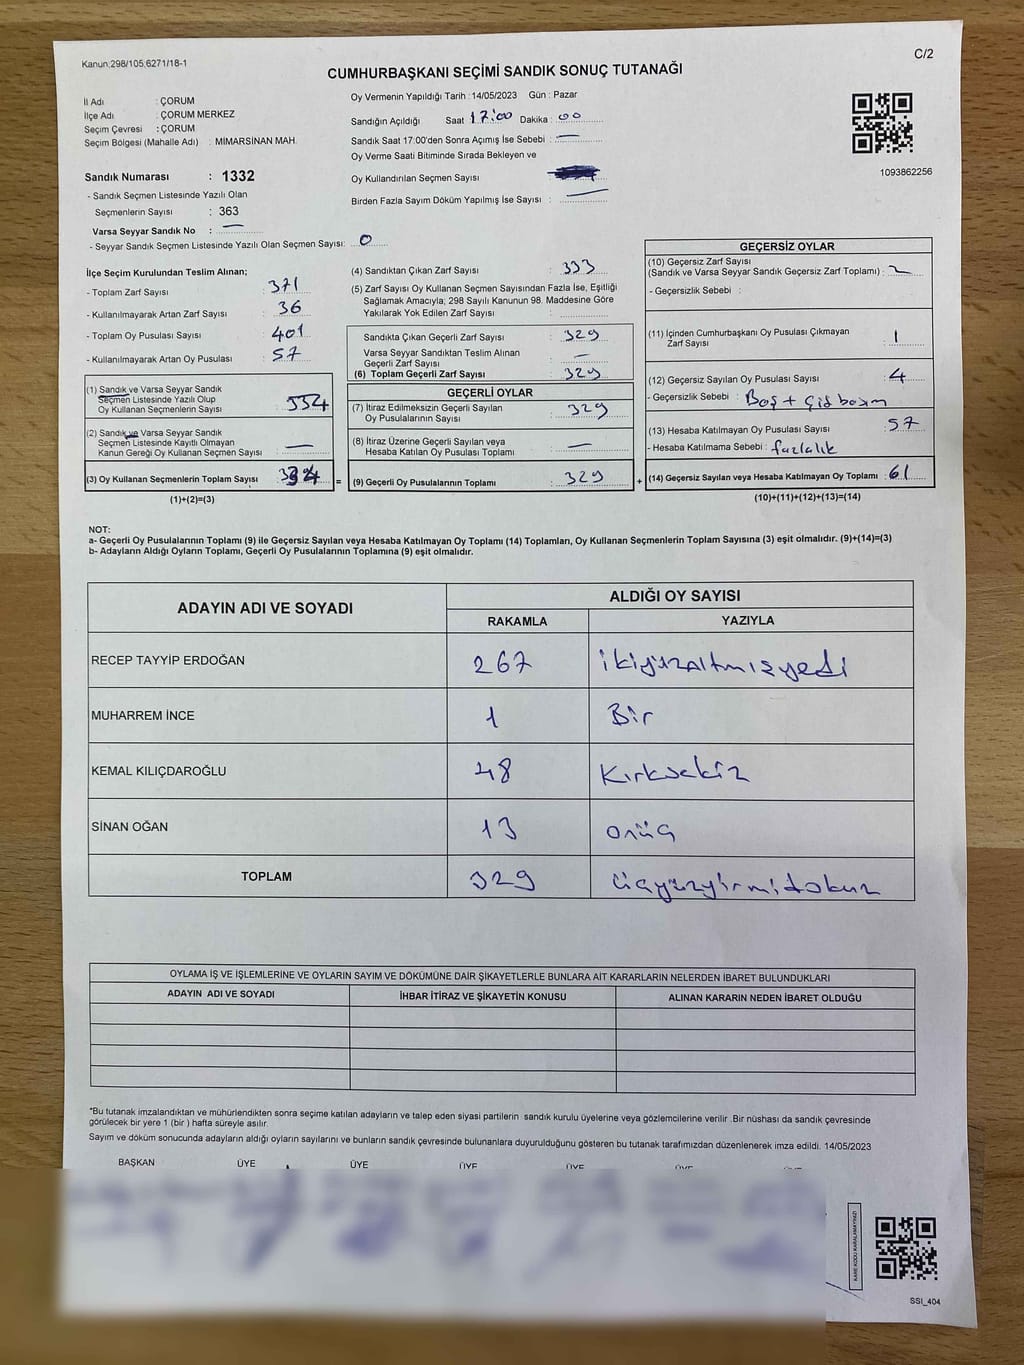 Kanun:298/105;6271/18-1
C/2
CUMHURBAŞKANI SEÇİMİ SANDIK SONUÇ TUTANAĞI
İl Adı : ÇORUM
İlçe Adı : ÇORUM MERKEZ
Seçim Çevresi : ÇORUM
Seçim Bölgesi (Mahalle Adı) : MİMARSİNAN MAH.
Sandık Numarası : 1332
- Sandık Seçmen Listesinde Yazılı Olan
Seçmenlerin Sayısı : 363
Varsa Seyyar Sandık No : —
- Seyyar Sandık Seçmen Listesinde Yazılı Olan Seçmen Sayısı: 0
Oy Vermenin Yapıldığı Tarih : 14/05/2023 Gün : Pazar
Sandığın Açıldığı Saat 17:00 Dakika : 00
Sandık Saat 17:00'den Sonra Açımış İse Sebebi : —
Oy Verme Saati Bitiminde Sırada Bekleyen ve
Oy Kullandırılan Seçmen Sayısı :
Birden Fazla Sayım Döküm Yapılmış İse Sayısı : —
1093862256
İlçe Seçim Kurulundan Teslim Alınan;
- Toplam Zarf Sayısı : 371
- Kullanılmayarak Artan Zarf Sayısı : 36
- Toplam Oy Pusulası Sayısı : 401
- Kullanılmayarak Artan Oy Pusulası : 57
(1) Sandık ve Varsa Seyyar Sandık
Seçmen Listesinde Yazılı Olup
Oy Kullanan Seçmenlerin Sayısı : 334
(2) Sandık ve Varsa Seyyar Sandık
Seçmen Listesinde Kayıtlı Olmayan
Kanun Gereği Oy Kullanan Seçmen Sayısı : —
(3) Oy Kullanan Seçmenlerin Toplam Sayısı : 334 =
(1)+(2)=(3)
(4) Sandıktan Çıkan Zarf Sayısı : 333
(5) Zarf Sayısı Oy Kullanan Seçmen Sayısından Fazla İse, Eşitliği
Sağlamak Amacıyla; 298 Sayılı Kanunun 98. Maddesine Göre
Yakılarak Yok Edilen Zarf Sayısı :
Sandıkta Çıkan Geçerli Zarf Sayısı : 329
Varsa Seyyar Sandıktan Teslim Alınan
Geçerli Zarf Sayısı : —
(6) Toplam Geçerli Zarf Sayısı : 329
GEÇERLİ OYLAR
(7) İtiraz Edilmeksizin Geçerli Sayılan
Oy Pusulalarının Sayısı : 329
(8) İtiraz Üzerine Geçerli Sayılan veya
Hesaba Katılan Oy Pusulası Toplamı : —
(9) Geçerli Oy Pusulalarının Toplamı : 329 +
GEÇERSİZ OYLAR
(10) Geçersiz Zarf Sayısı
(Sandık ve Varsa Seyyar Sandık Geçersiz Zarf Toplamı) :
- Geçersizlik Sebebi :
(11) İçinden Cumhurbaşkanı Oy Pusulası Çıkmayan
Zarf Sayısı : 1
(12) Geçersiz Sayılan Oy Pusulası Sayısı : 4
- Geçersizlik Sebebi : Boş + Çift basım
(13) Hesaba Katılmayan Oy Pusulası Sayısı : 57
- Hesaba Katılmama Sebebi : fazlalık
(14) Geçersiz Sayılan veya Hesaba Katılmayan Oy Toplamı : 61
(10)+(11)+(12)+(13)=(14)
NOT:
a- Geçerli Oy Pusulalarının Toplamı (9) ile Geçersiz Sayılan veya Hesaba Katılmayan Oy Toplamı (14) Toplamları, Oy Kullanan Seçmenlerin Toplam Sayısına (3) eşit olmalıdır. (9)+(14)=(3)
b- Adayların Aldığı Oyların Toplamı, Geçerli Oy Pusulalarının Toplamına (9) eşit olmalıdır.
ADAYIN ADI VE SOYADI
ALDIĞI OY SAYISI
RAKAMLA YAZIYLA
RECEP TAYYİP ERDOĞAN 267 ikiyüzaltmışyedi
MUHARREM İNCE 1 Bir
KEMAL KILIÇDAROĞLU 48 Kırksekiz
SİNAN OĞAN 13 onüç
TOPLAM 329 üçyüzyirmidokuz
OYLAMA İŞ VE İŞLEMLERİNE VE OYLARIN SAYIM VE DÖKÜMÜNE DAİR ŞİKAYETLERLE BUNLARA AİT KARARLARIN NELERDEN İBARET BULUNDUKLARI
ADAYIN ADI VE SOYADI İHBAR İTİRAZ VE ŞİKAYETİN KONUSU ALINAN KARARIN NEDEN İBARET OLDUĞU
*Bu tutanak imzalandıktan ve mühürlendikten sonra seçime katılan adayların ve talep eden siyasi partilerin sandık kurulu üyelerine veya gözlemcilerine verilir .Bir nüshası da sandık çevresinde
görülecek bir yere 1 (bir ) hafta süreyle asılır.
Sayım ve döküm sonucunda adayların aldığı oyların sayılarını ve bunların sandık çevresinde bulunanlara duyurulduğunu gösteren bu tutanak tarafımızdan düzenlenerek imza edildi. 14/05/2023
BAŞKAN ÜYE ÜYE ÜYE ÜYE ÜYE
KARE KODU KARALAMAYINIZ!
SSI_404